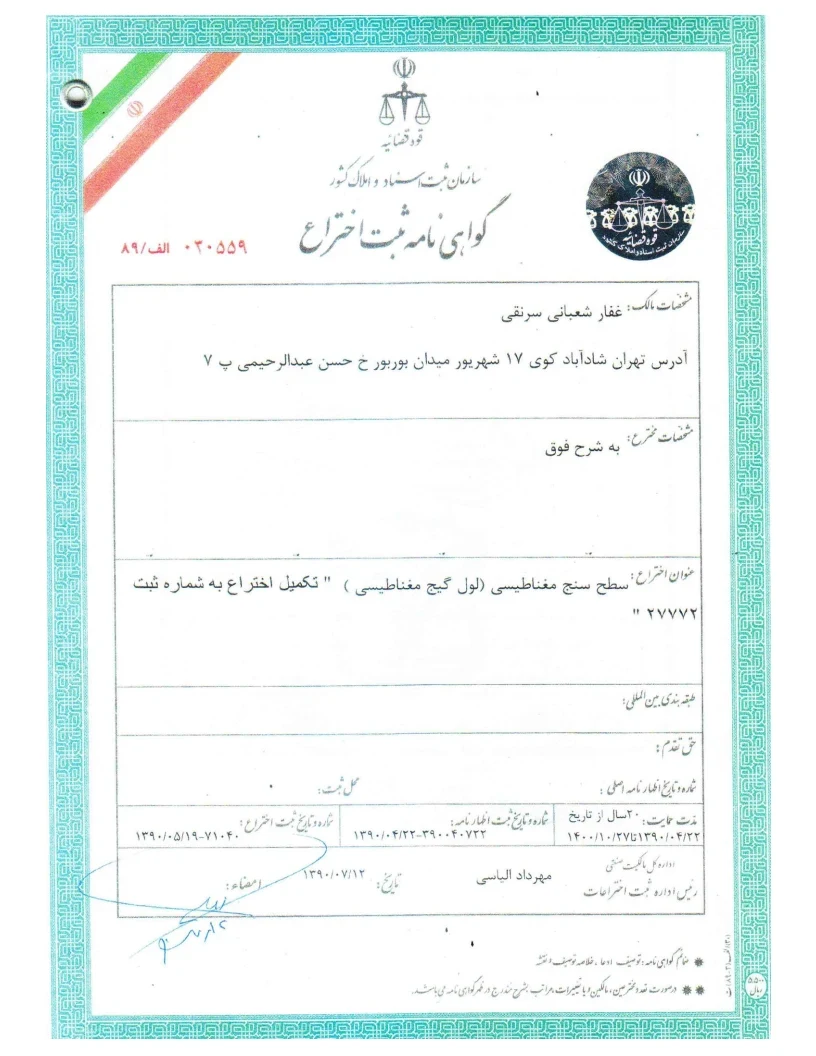 قوه قضائیه
سازمان ثبت اسناد و املاک کشور
گواهی نامه ثبت اختراع
۰۳۰۵۵۹ الف/۸۹
قوه قضائیه
سازمان ثبت اسناد و املاک کشور
مشخصات مالک: غفار شعبانی سرنقی
آدرس تهران شادآباد کوی ۱۷ شهریور میدان بوربور خ حسن عبدالرحیمی پ ۷
مشخصات مخترع: به شرح فوق
عنوان اختراع: سطح سنج مغناطیسی (لول گیج مغناطیسی ) " تکمیل اختراع به شماره ثبت
۲۷۷۷۲ "
طبقه بندی بین المللی:
حق تقدم:
شماره و تاریخ اظهارنامه اصلی : محل ثبت:
مدت حمایت: ۲۰سال از تاریخ
۱۳۹۰/۰۴/۲۲تا۱۴۰۰/۱۰/۲۷
شماره و تاریخ ثبت اظهارنامه:
۱۳۹۰/۰۴/۲۲-۳۹۰۰۴۰۷۲۲
شماره و تاریخ ثبت اختراع:
۱۳۹۰/۰۵/۱۹-۷۱۰۴۰
اداره کل مالکیت صنعتی
رئیس اداره ثبت اختراعات مهرداد الیاسی تاریخ: ۱۳۹۰/۰۷/۱۲ امضاء:
ضمائم گواهی نامه: توصیف، ادعا، خلاصه توصیف و نقشه
در صورت تعدد مخترعین، مالکین و یا تغییرات، مراتب بشرح مندرج در ظهر گواهی نامه می باشد.
۵۵۰۰ ریال